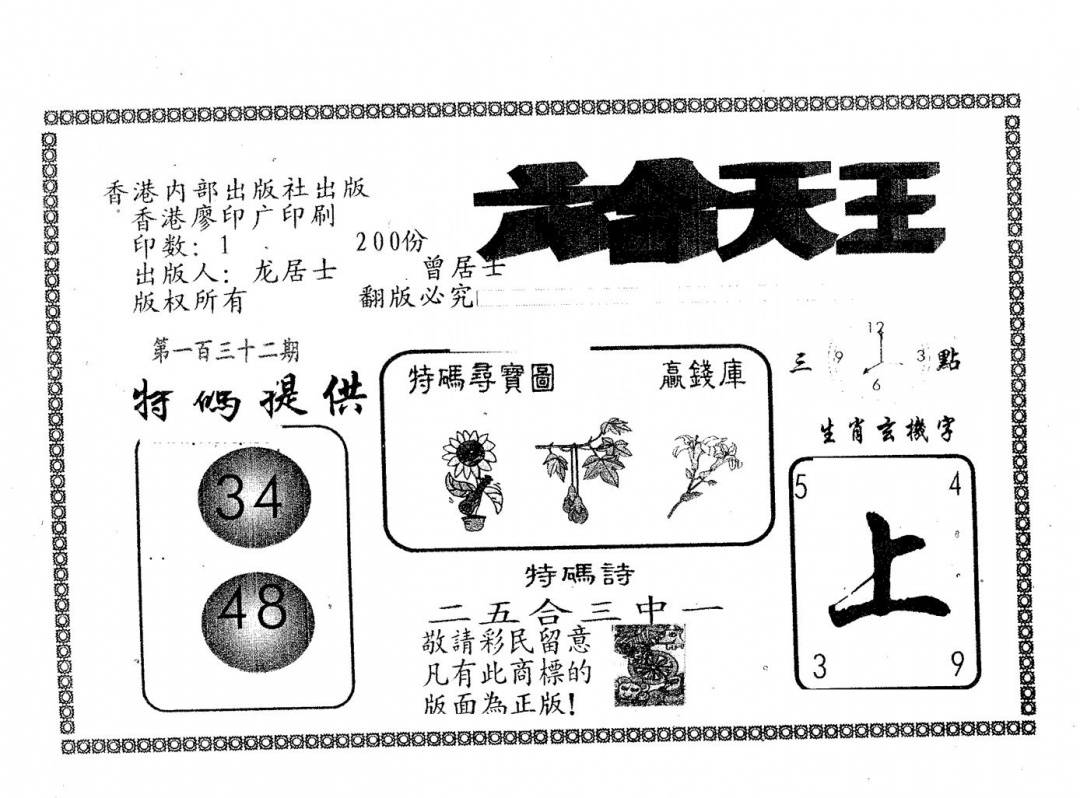 六合天王
香港内部出版社出版
香港廖印广印刷
印数：1 200份
出版人：龙居士 曾居士
版权所有 翻版必究
第一百三十二期
特碼提供
34
48
特碼尋寶圖 贏錢庫
特碼詩
二五合三中一
敬請彩民留意
凡有此商標的
版面為正版！
三 點
12
9 3
6
生肖玄機字
5 4
上
3 9